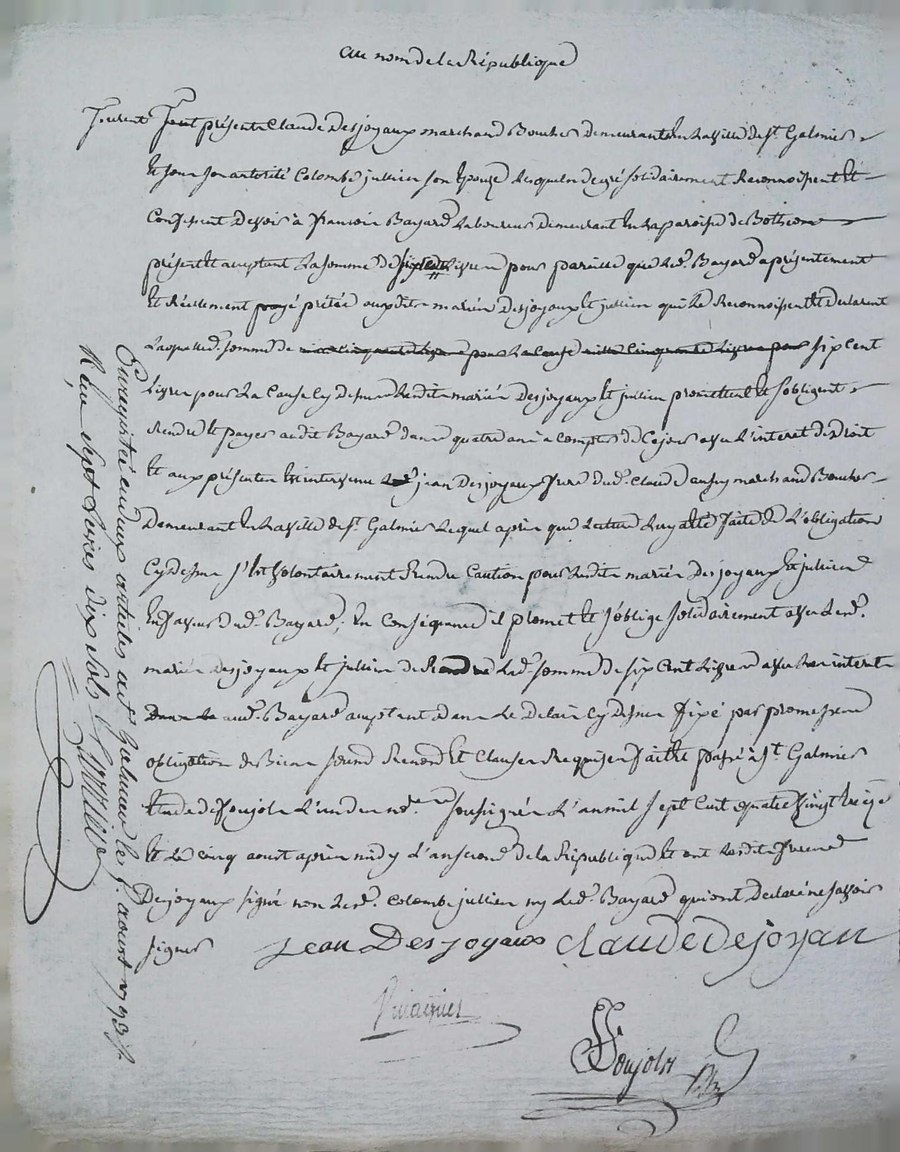 au nom de la République
Furent présents Claude Desjoyaux marchand Boucher demeurant en la ville de St. Galmier
et sous son autorité Colombe jullien son épouze lesquels de gré solidairement Reconnoissent et
Confessent devoir à francois Bayard laboureur demeurant en la paroisse de Bothéon
présent et acceptant la somme de six cent livres pour pareille que led. Bayard a présentement
et Réellement payé prétée auxdits mariés Desjoyaux et jullien qui le Reconnoissent et declarent
laquelle d. somme de six cent
livres pour la Cause cy dessus lesdits mariés Desjoyaux et jullien promettent et s'obligent
Rendre et payer audit Bayard dans quatre ans a compter de Ce jour avec l'interet de droit
et aux présentes est intervenu jean Desjoyaux frere dud. Claude aussy marchand Boucher
Demeurant en la ville de St. Galmier lequel après que lecture luy a été faite de l'obligation
Cy dessus s'est volontairement Rendu Caution pour lesdits mariés Desjoyaux et jullien
en faveur dud. Bayard; en Conséquence il promet et s'oblige solidairement avec lesd.
mariés Desjoyaux et jullien de Rendre lad. somme de six cent livres avec les interets
aud. Bayard acceptant dans le Delais cy dessus fixé par promesses
obligation de Biens Renond et Clauses Requises fait et passé à St. Galmier
etude de Soujols l'un des nores soussignés l'an mil sept cent quatre vingt treize
et le cinq aoust après midy l'an second de la République et ont lesdits freres
Desjoyaux signé non lesd. Colombe jullien ny led. Bayard qui ont declaré ne savoir
signer
jean Desjoyaux Claude Dejoyau
Soujols
Enregistré en deux articles a St. Galmier le aoust 1793
Reçu sept livres dix sols